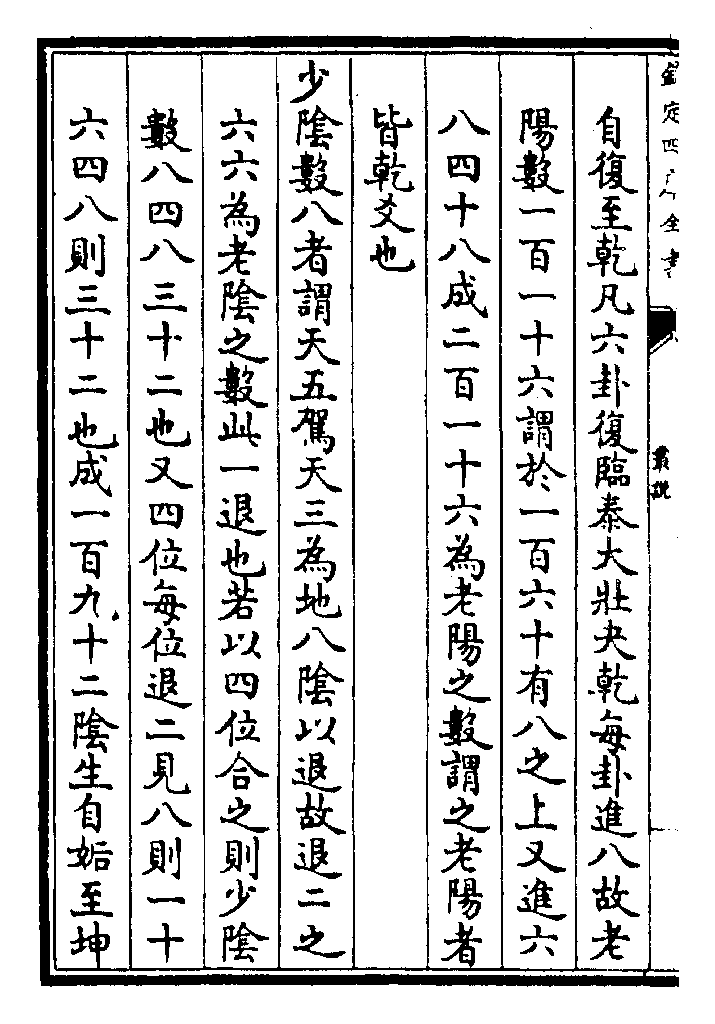 欽定四庫全書
叢說
自復至乾凡六卦復臨泰大壯夬乾每卦進八故老
陽數一百一十六謂於一百六十有八之上又進六
八四十八成二百一十六為老陽之數謂之老陽者
皆乾爻也
少陰數八者謂天五駕天三為地八陰以退故退二之
六六為老陰之數此一退也若以四位合之則少陰
數八四八三十二也又四位每位退二見八則一十
六四八則三十二也成一百九十二陰生自姤至坤